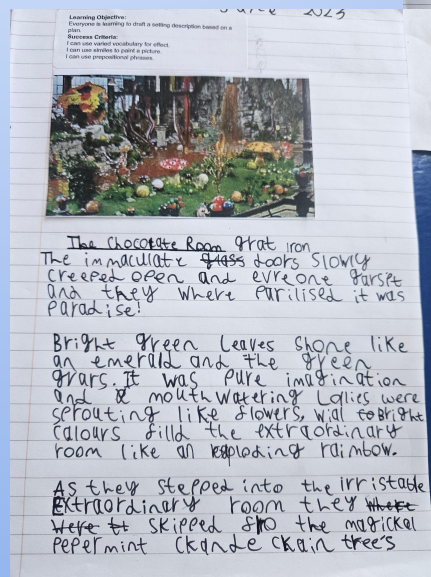 June 2023
Learning Objective:
Everyone is learning to draft a setting description based on a
plan.
Success Criteria:
I can use varied vocabulary for effect.
I can use similes to paint a picture.
I can use prepositional phrases.
The Chocotate Room grat iron
The immaculate glass doors Slowly
creeped open and evreone garspt
and they where parilised it was
paradise!
Bright green leaves shone like
an emerald and the green
grars. It was pure imagination
and mouth watering Lollies were
sprouting like flowers, wial to Bright
calours filld the extraordinary
room like an exploding rainbow.
As they stepped into the irristable
Extraordinary room they where
were skipped the magickal
pepermint ckande ckain tree's